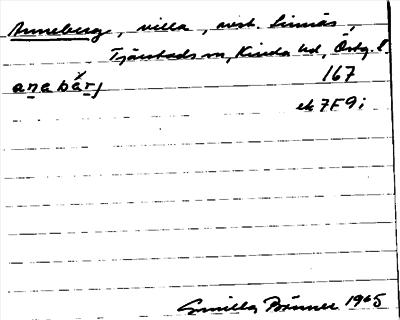 Anneberg, villa, vist. Linnäs,
Tjärstads sn, Kinda hd, Östg. l.
anabärj 167
ek 7F9i
Gunilla Brånner 1965